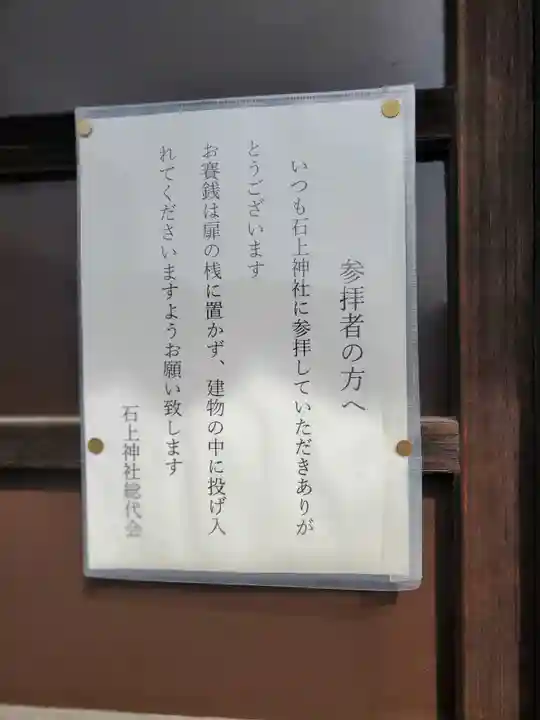 参拝者の方へ
いつも石上神社に参拝していただきありが
とうございます
お賽銭は扉の桟に置かず、建物の中に投げ入
れてくださいますようお願い致します
石上神社総代会